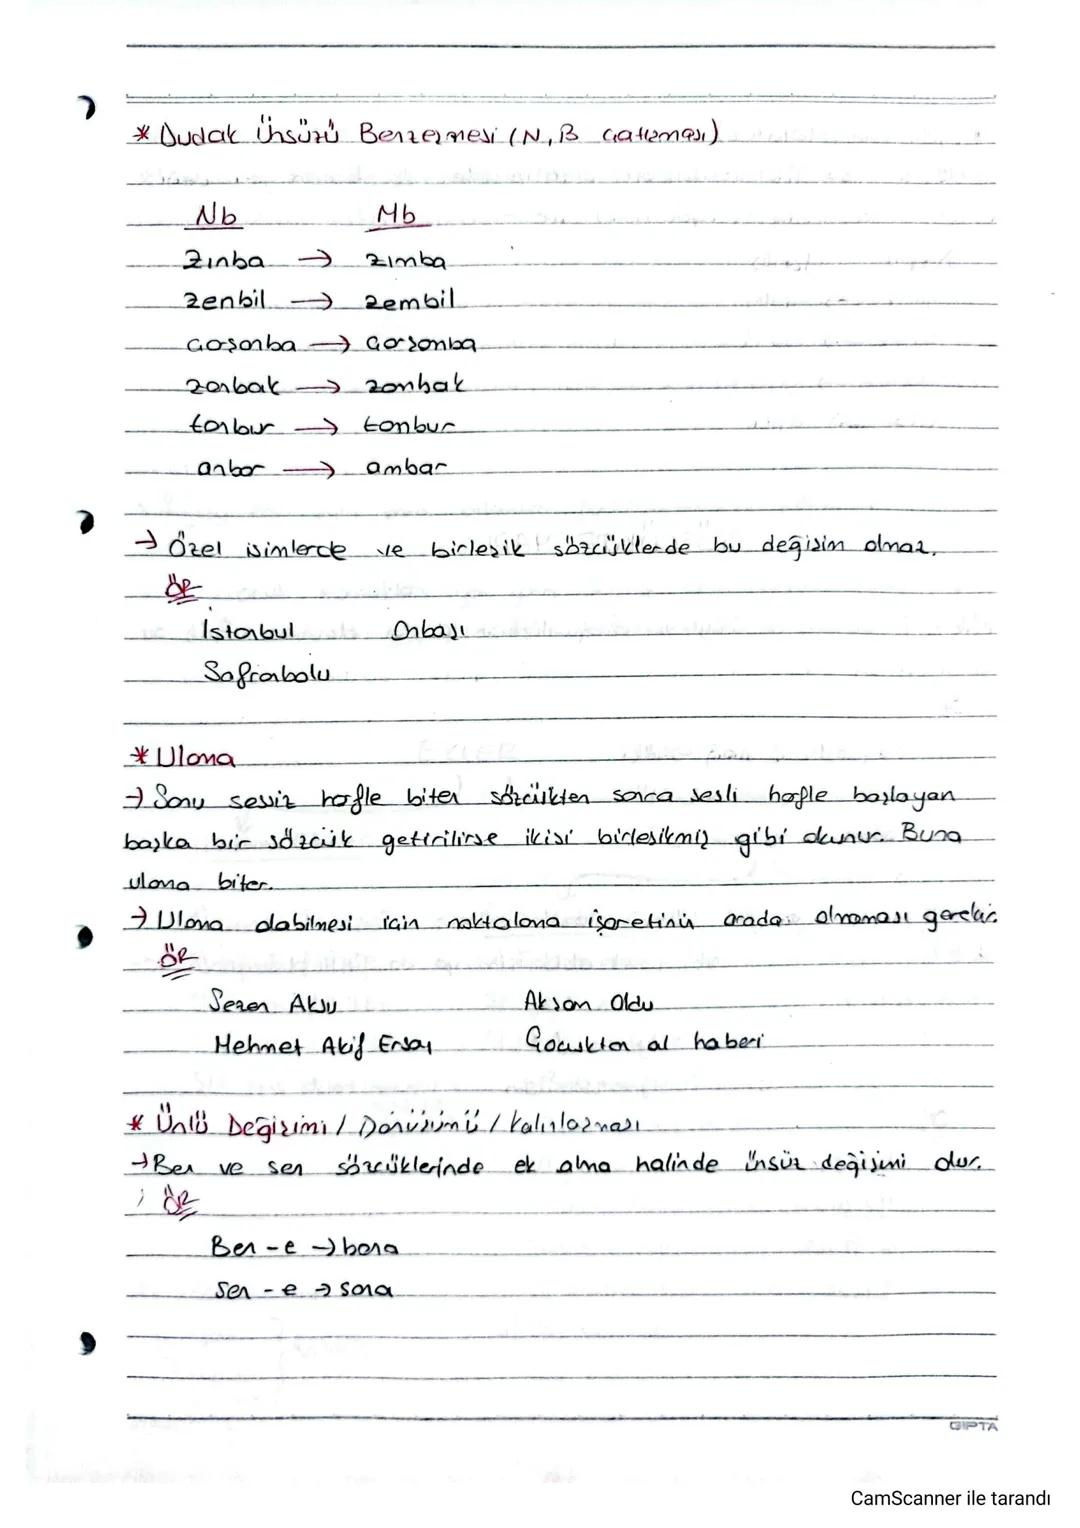 * Dudak Ünsüzü Benzeşmesi (N, B Çatışması)
Nb Mb
Zınba → zımba
zenbil → zembil
Çarşanba → Çarşamba
zanbak → zambak
tanbur → tambur
anbar → ambar
→ Özel isimlerde ve birleşik sözcüklerde bu değişim olmaz.
ÖR
İstanbul Onbaşı
Safranbolu
* Ulama
→ Sonu sessiz harfle biten sözcükten sonra sesli harfle başlayan
başka bir sözcük getirilirse ikisi birleşikmiş gibi okunur. Buna
ulama biter.
→ Ulama olabilmesi için noktalama işaretinin arada olmaması gerekir.
ÖR
Sezen Aksu Akşam Oldu
Mehmet Akif Ersoy Çocuktan al haberi
* Ünlü Değişimi / Dönüşümü / Kalınlaşması
→ Ben ve sen sözcüklerinde ek alma halinde ünsüz değişimi olur.
ÖR
Ben - e → bana
Sen - e → sana
GIPTA
CamScanner ile tarandı